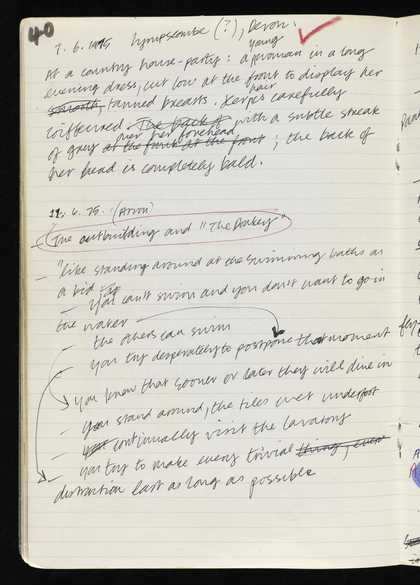 40
7. 6. 1975 Lympscombe (?), Devon.
At a country house-party: a young woman in a long
evening dress, cut low at the front to display her
smooth, tanned breasts. Her hair carefully
coiffeured. The back of with a subtle streak
of grey at the front at the front over her forehead; the back of
her head is completely bald.
11. 6. 75. (Arvon)
The outbuilding and "The Dakey"
— "like standing around at the swimming baths as
a kid
— you can't swim and you don't want to go in
the water
— the others can swim
— you try desperately to postpone that moment
you know that sooner or later they will dive in
— you stand around, the tiles wet underfoot
— continually visit the lavatory
— you try to make every trivial thing, event
distraction last as long as possible